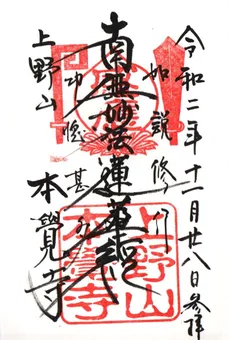 令和二年十一月廿八日参拝
如説修行
南無妙法蓮華経
功徳甚多
上野山
本覺寺
上野山
本覺寺